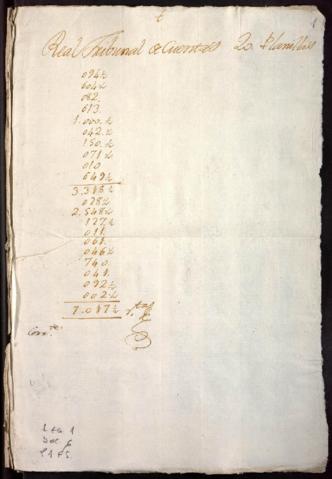 1
Real Tribunal de Cuentas 20 Planillas
094½
604½
082.
613.
1.000.½
042.½
150.½
071½
010
649½
3.318½
028½
2.548½
127½
011
061.
046½
740.
041.
092½
002½
7.017½
Corr.te
Leg 1
Doc 6